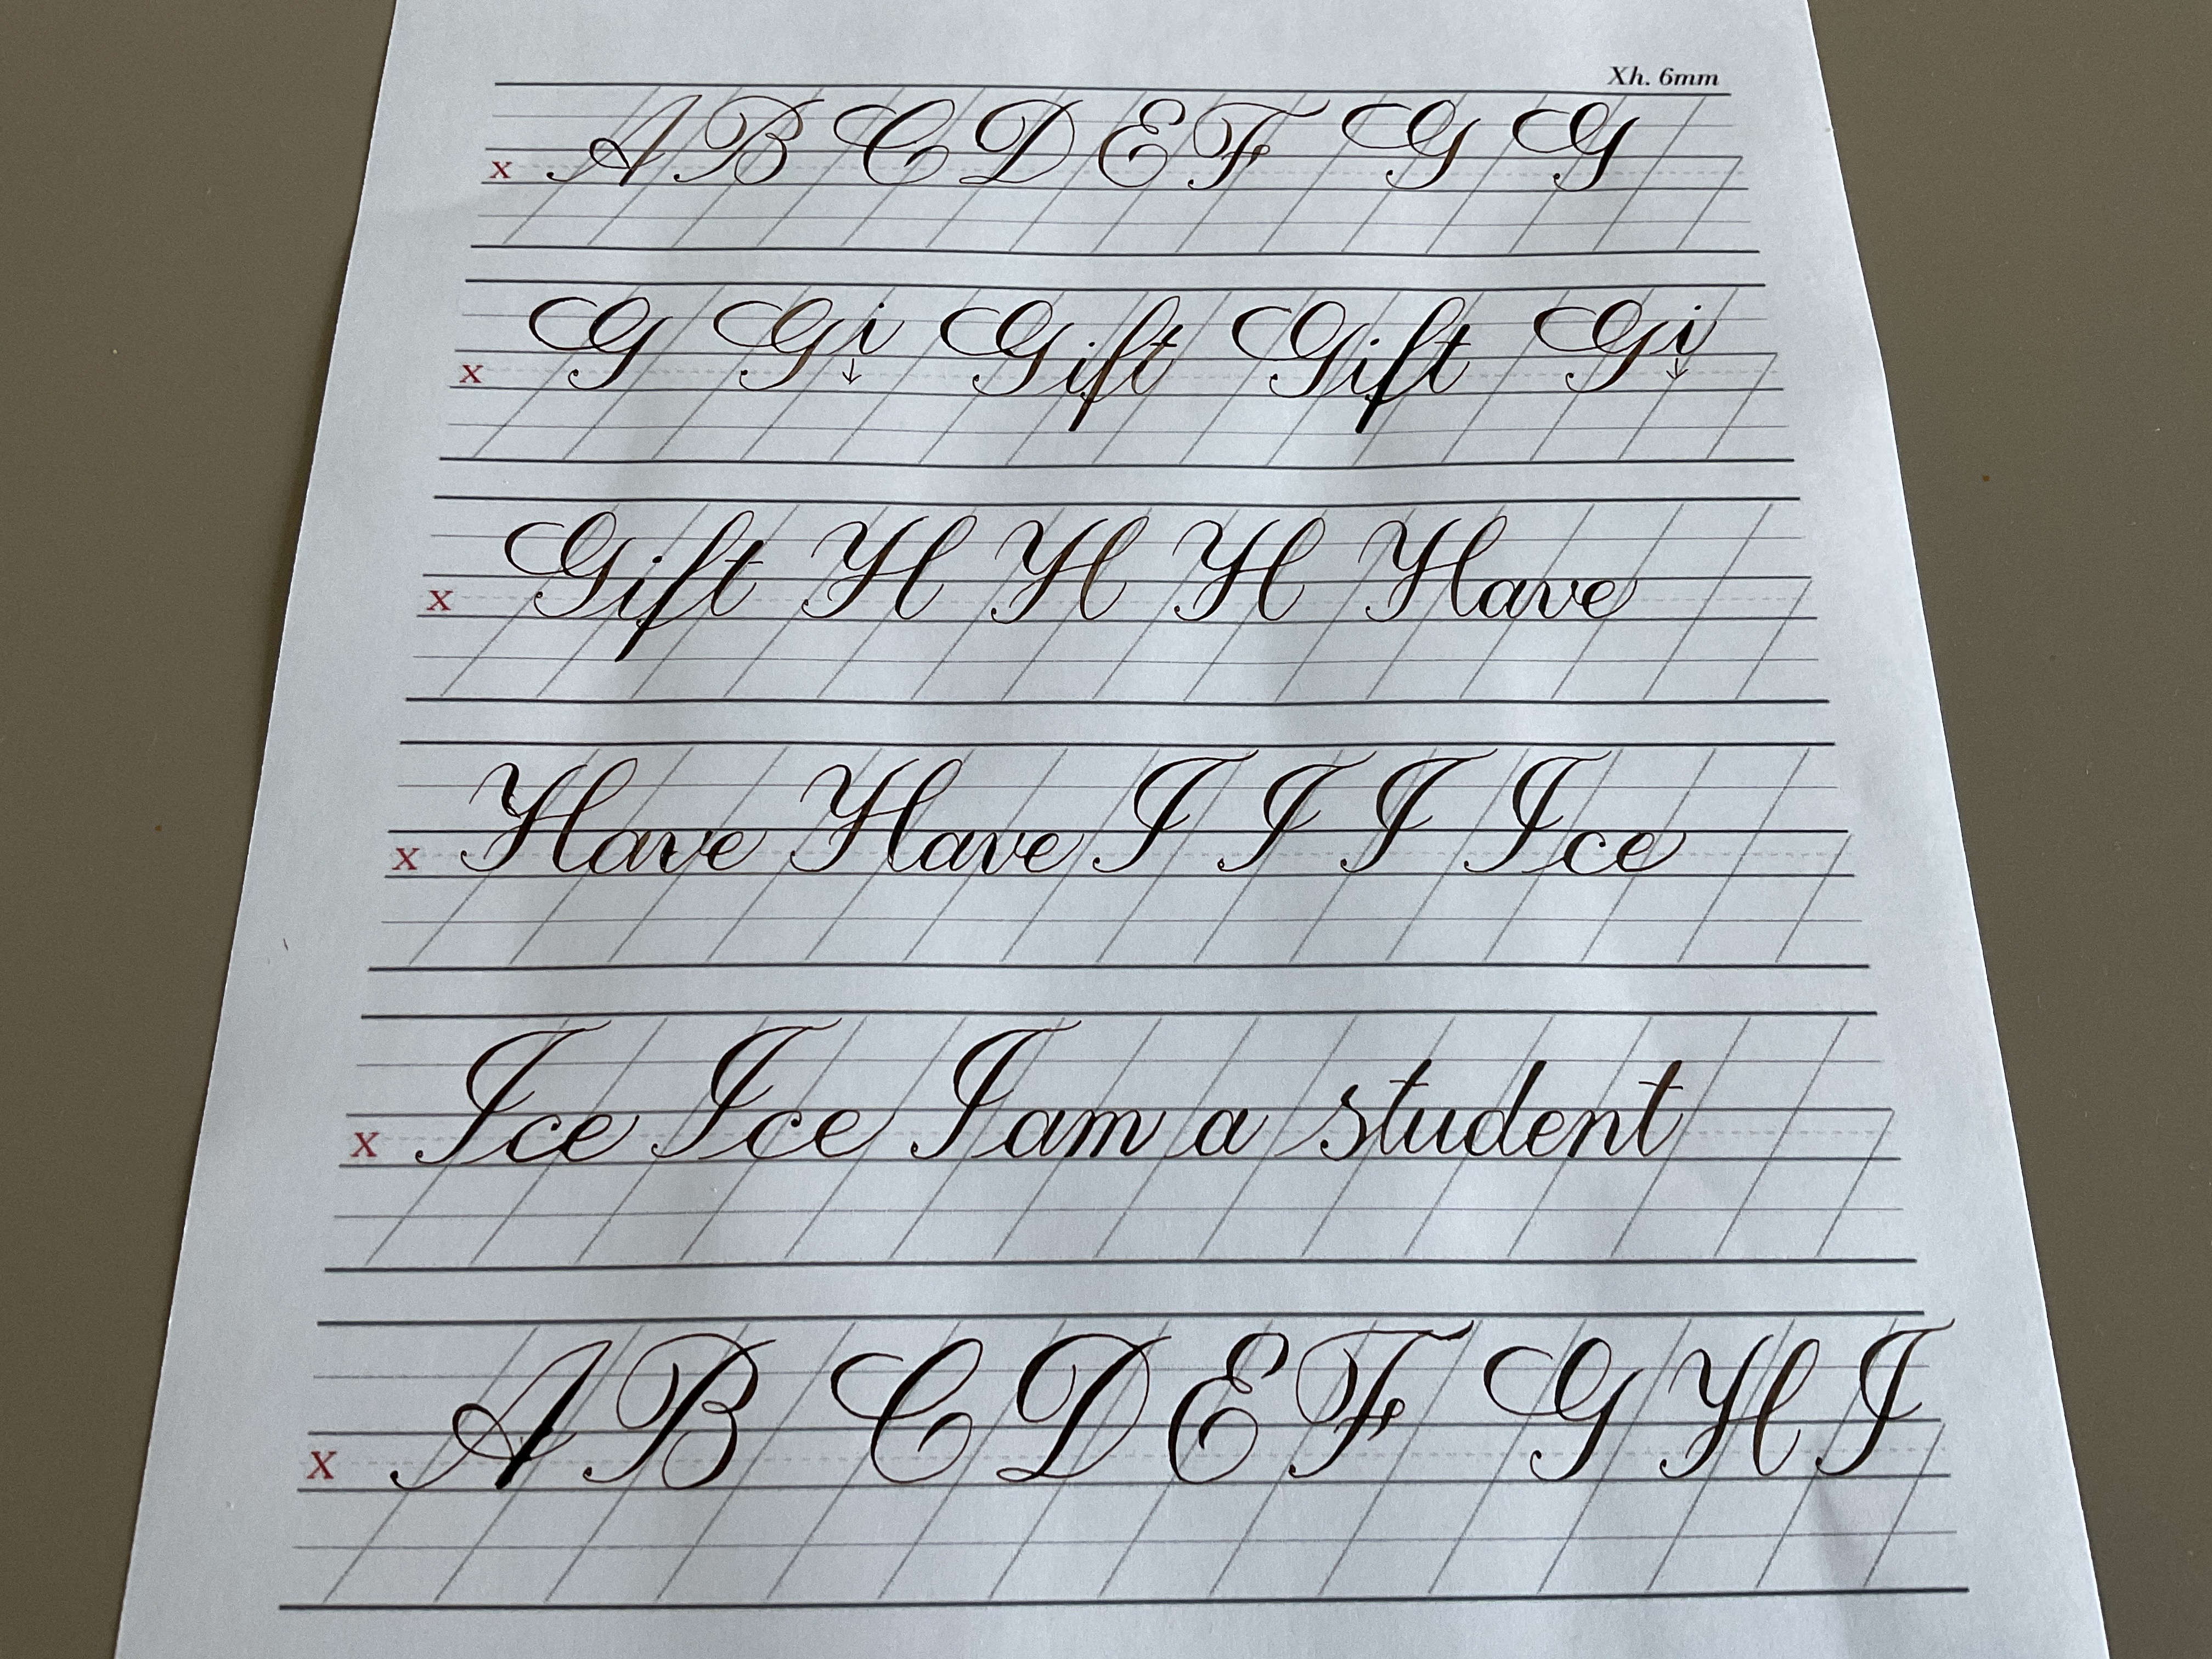 Xh. 6mm
x A B C D E F G G
x G Gi ↓ Gift Gift Gi ↓
x Gift H H H Have
x Have Have I I I Ice
x Ice Ice I am a student
x A B C D E F G H I